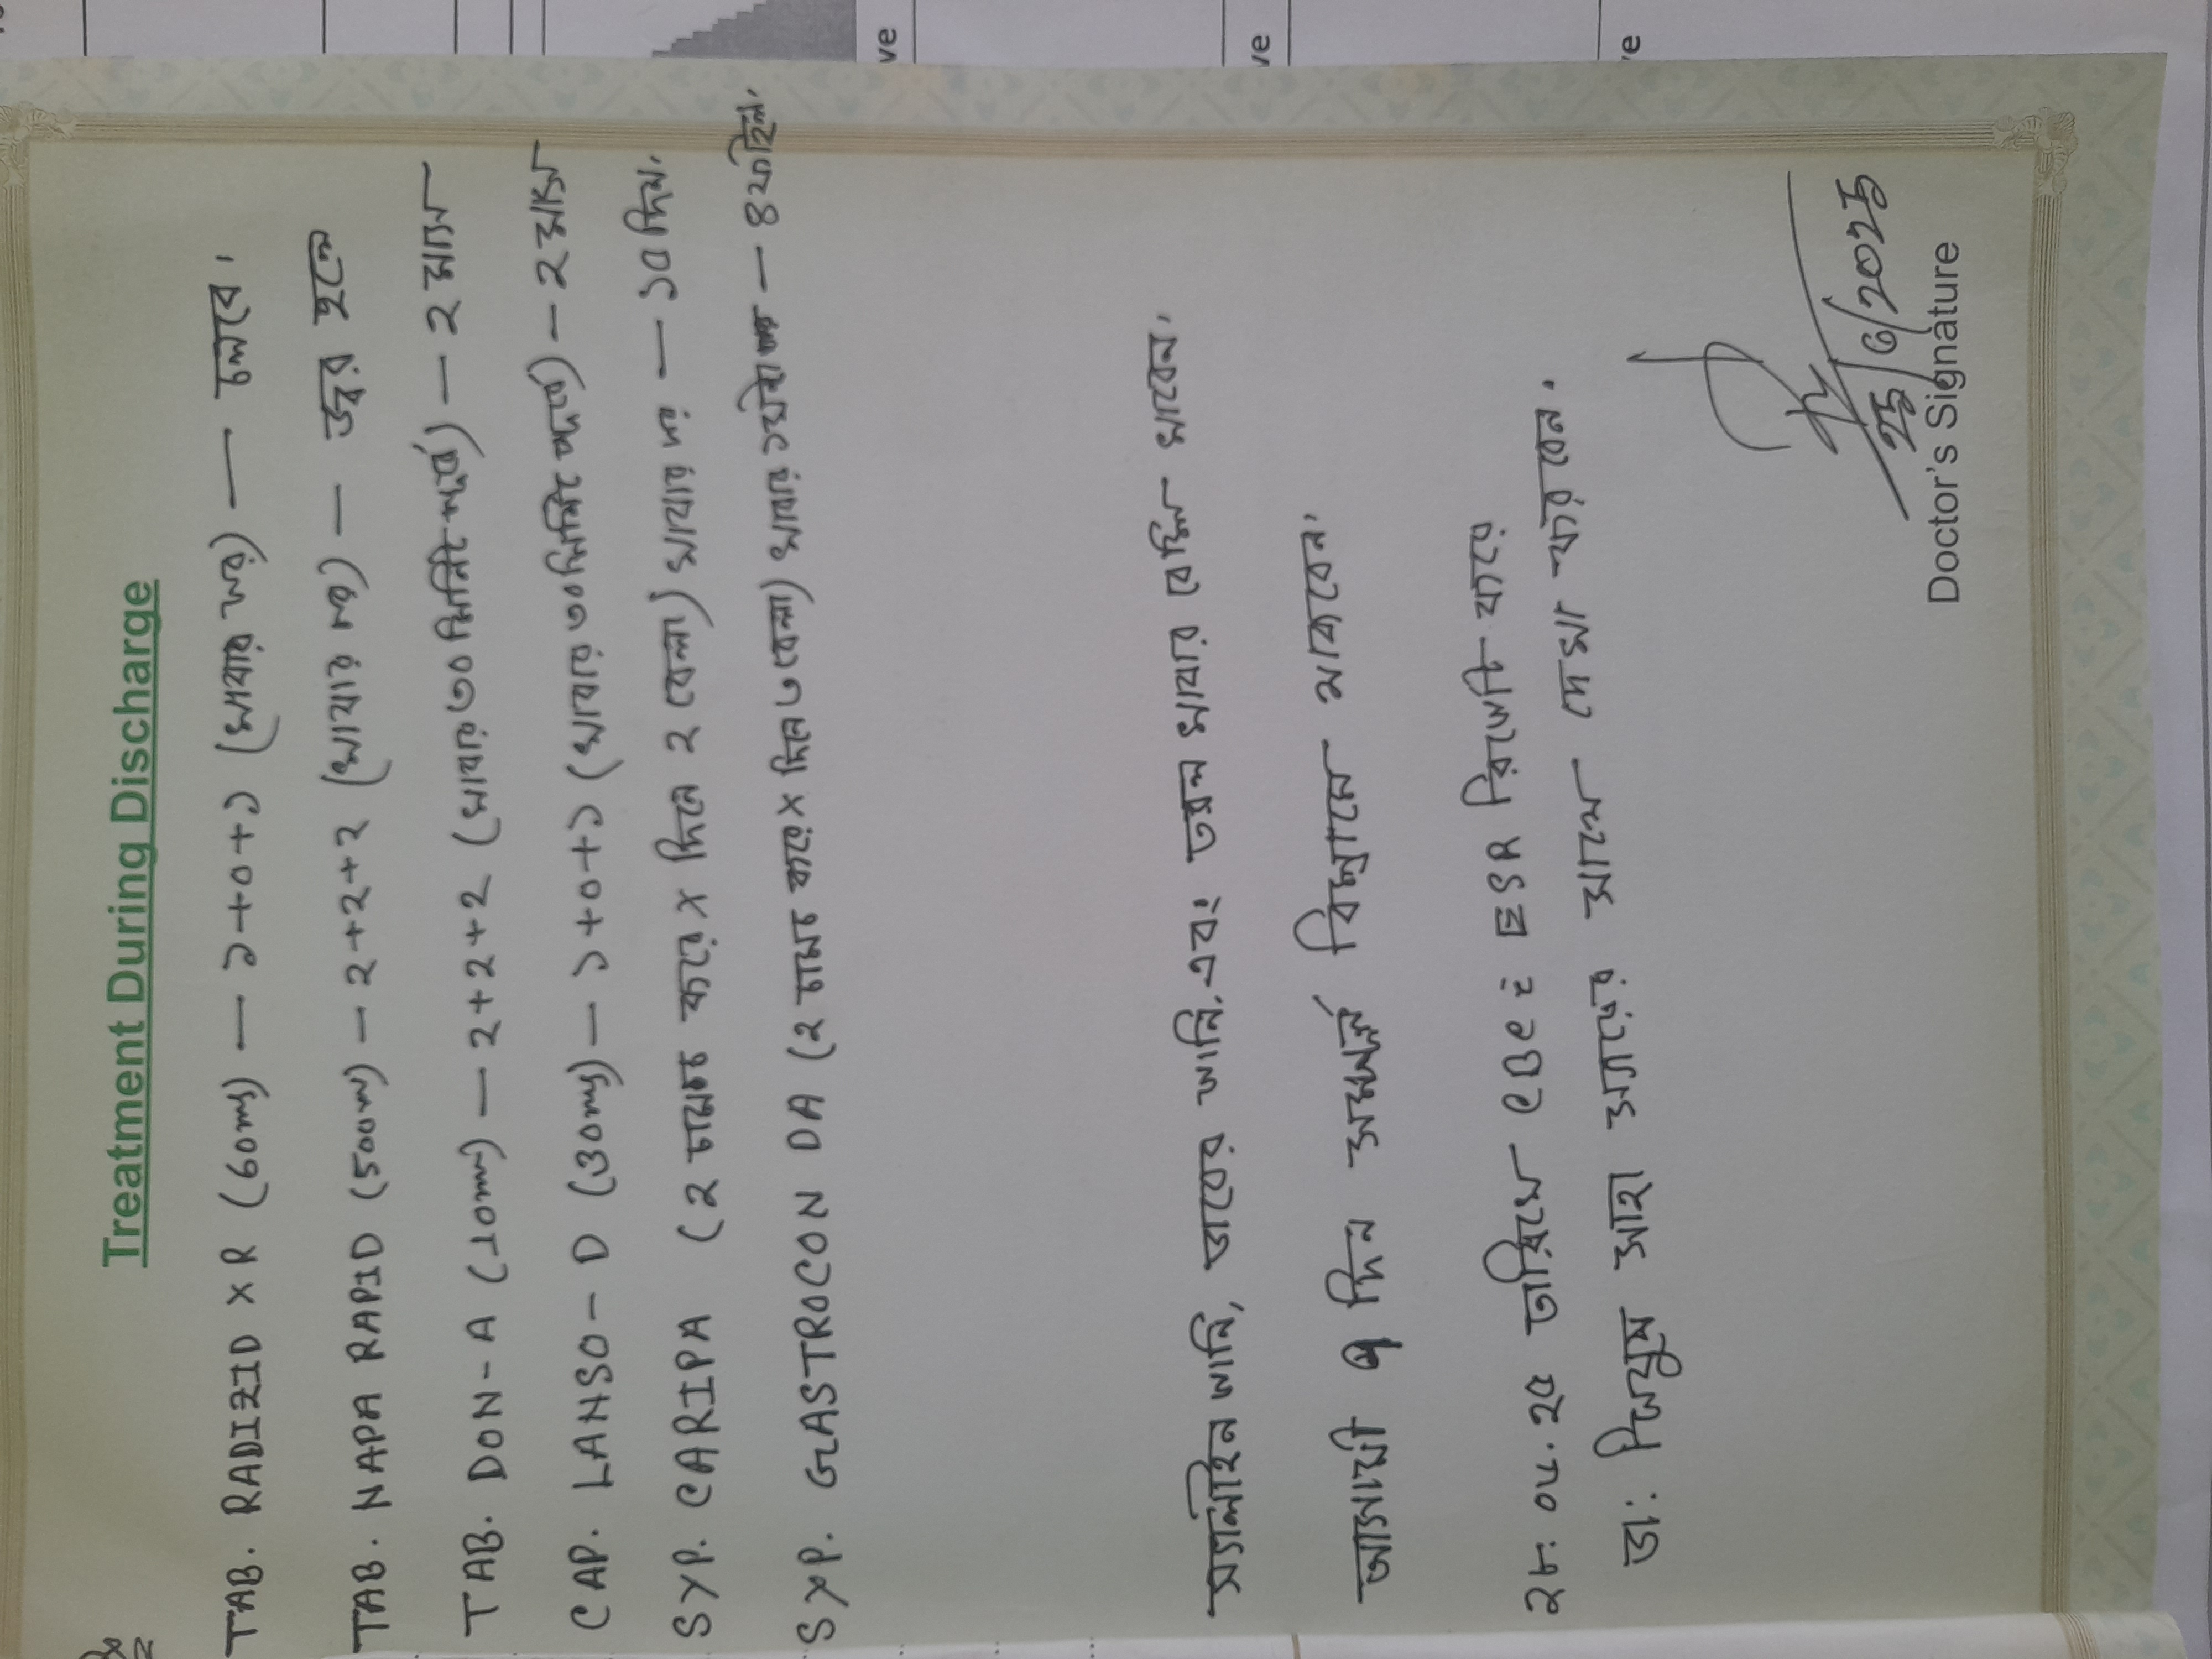 Treatment During Discharge
TAB. RADIZID XR (60mg) — ১+০+১ (খাবার পর) — চলবে।
TAB. NAPA RAPID (500mg) — 2+2+2 (খাবার পর) — জ্বর হলে
TAB. DON-A (10mg) — 2+2+2 (খাবার ৩০ মিনিট পূর্বে) — 2 মাস
CAP. LANSO-D (30mg) — ১+০+১ (খাবার ৩০ মিনিট পূর্বে) — 2 মাস
SYP. CARIPA (২ চামচ করে X দিনে 2 বেলা) খাবার পর — ১০ দিন।
SYP. GASTROCON DA (২ চামচ করে X দিনে ৩ বেলা) খাবার — ৪ ফাইল।
স্যালাইন পানি, ডাবের পানি, এবং তরল খাবার বেশি খাবেন।
আগামী ৭ দিন সম্পূর্ণ বিশ্রামে থাকবেন।
২৮. ০৮. ২৫ তারিখে CBC ċ ESR রিপোর্ট করে
ডা: পিযুষ সাহা স্যারের সাথে দেখা করবেন।
Doctor's Signature
ve
ve